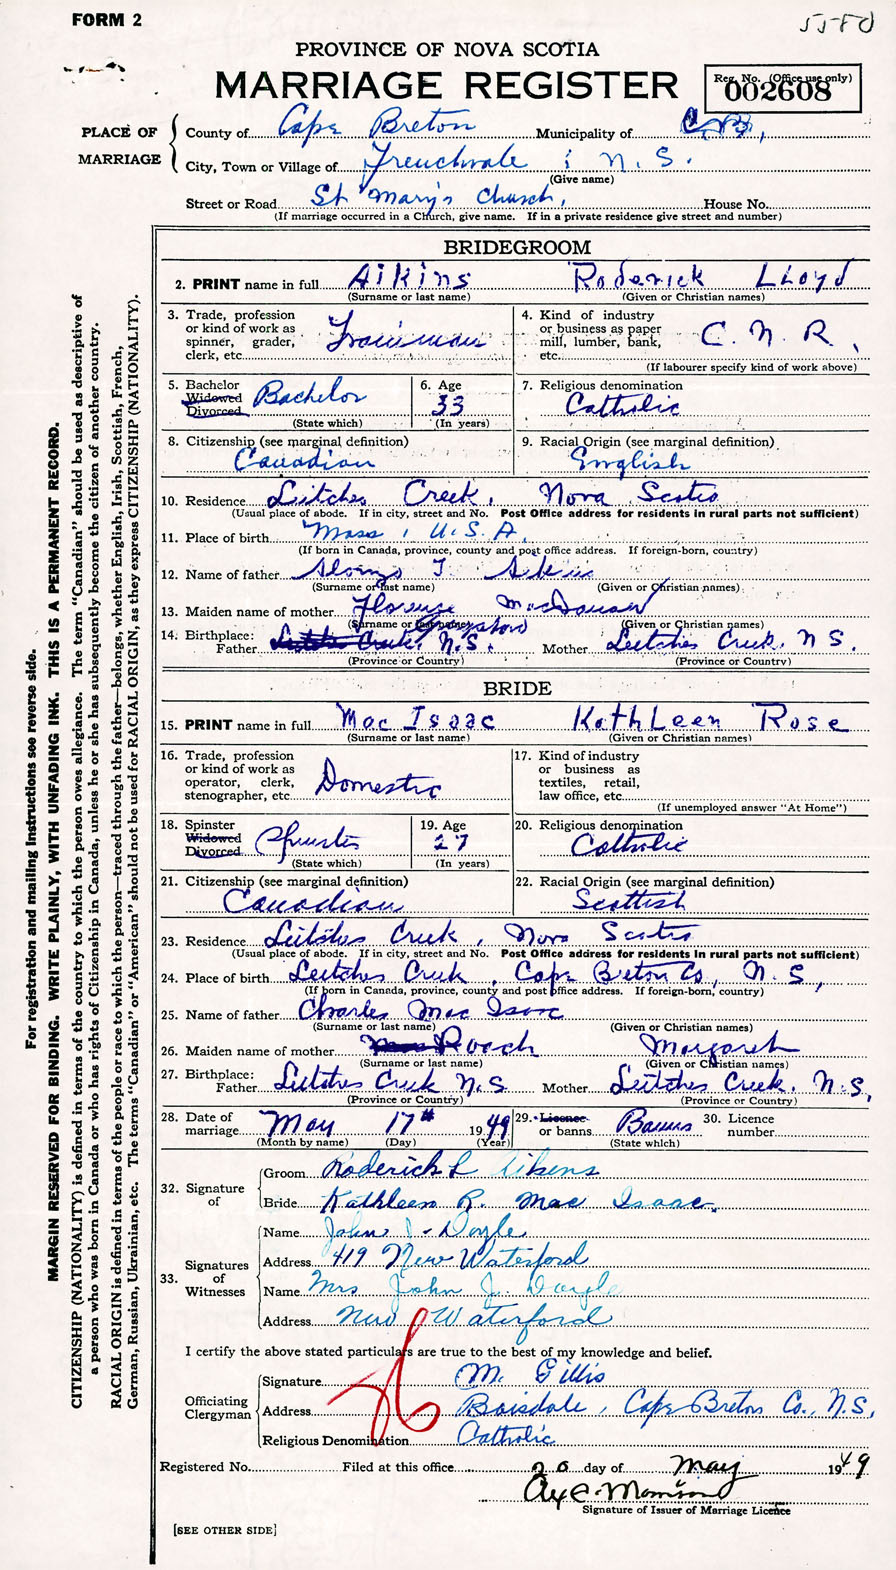 FORM 2
5580
PROVINCE OF NOVA SCOTIA
MARRIAGE REGISTER
Reg. No. (Office use only)
002608
PLACE OF MARRIAGE
County of Cape Breton Municipality of C.B.,
City, Town or Village of Frenchvale, N.S.
(Give name)
Street or Road St Mary's Church, House No.
(If marriage occurred in a Church, give name. If in a private residence give street and number)
BRIDEGROOM
2. PRINT name in full Aikins Roderick Lloyd
(Surname or last name) (Given or Christian names)
3. Trade, profession or kind of work as spinner, grader, clerk, etc. Trainman
4. Kind of industry or business as paper mill, lumber, bank, etc. C.N.R.
(If labourer specify kind of work above)
5. Bachelor Widowed Divorced Bachelor
(State which)
6. Age 33
(In years)
7. Religious denomination Catholic
8. Citizenship (see marginal definition) Canadian
9. Racial Origin (see marginal definition) English
10. Residence Leitches Creek, Nova Scotia
(Usual place of abode. If in city, street and No. Post Office address for residents in rural parts not sufficient)
11. Place of birth Mass, U.S.A.
(If born in Canada, province, county and post office address. If foreign-born, country)
12. Name of father Alonzo T.
(Surname or last name) (Given or Christian names)
13. Maiden name of mother Florence
(Surname or last name) (Given or Christian names)
14. Birthplace: Father Leitches Creek, N.S. Mother Leitches Creek, N S.
(Province or Country) (Province or Country)
BRIDE
15. PRINT name in full Mac Isaac Kathleen Rose
(Surname or last name) (Given or Christian names)
16. Trade, profession or kind of work as operator, clerk, stenographer, etc. Domestic
17. Kind of industry or business as textiles, retail, law office, etc.
(If unemployed answer "At Home")
18. Spinster Widowed Divorced Spinster
(State which)
19. Age 27
(In years)
20. Religious denomination Catholic
21. Citizenship (see marginal definition) Canadian
22. Racial Origin (see marginal definition) Scottish
23. Residence Leitches Creek, Nova Scotia
(Usual place of abode. If in city, street and No. Post Office address for residents in rural parts not sufficient)
24. Place of birth Leitches Creek, Cape Breton Co, N.S,
(If born in Canada, province, county and post office address. If foreign-born, country)
25. Name of father Charles Mac Isaac
(Surname or last name) (Given or Christian names)
26. Maiden name of mother Roach Margaret
(Surname or last name) (Given or Christian names)
27. Birthplace: Father Leitches Creek N.S Mother Leitches Creek, N.S,
(Province or Country) (Province or Country)
28. Date of marriage May 17th 1949
(Month by name) (Day) (Year)
29. Licence or banns Banns
(State which)
30. Licence number
32. Signature of
Groom Roderick L Aikens
Bride Kathleen R. Mac Isaac.
33. Signatures of Witnesses
Name John J. Doyle
Address 419 New Waterford
Name Mrs John J. Doyle
Address New Waterford
I certify the above stated particulars are true to the best of my knowledge and belief.
Officiating Clergyman
Signature M. Gillis
Address Boisdale, Cape Breton Co., N.S,
Religious Denomination Catholic
Registered No. Filed at this office 20 day of May 1949
Signature of Issuer of Marriage Licence
[SEE OTHER SIDE]
For registration and mailing instructions see reverse side.
MARGIN RESERVED FOR BINDING. WRITE PLAINLY, WITH UNFADING INK. THIS IS A PERMANENT RECORD.
CITIZENSHIP (NATIONALITY) is defined in terms of the country to which the person owes allegiance. The term "Canadian" should be used as descriptive of
a person who was born in Canada or who has rights of Citizenship in Canada, unless he or she has subsequently become the citizen of another country.
RACIAL ORIGIN is defined in terms of the people or race to which the person—traced through the father—belongs, whether English, Irish, Scottish, French,
German, Russian, Ukrainian, etc. The terms "Canadian" or "American" should not be used for RACIAL ORIGIN, as they express CITIZENSHIP (NATIONALITY).